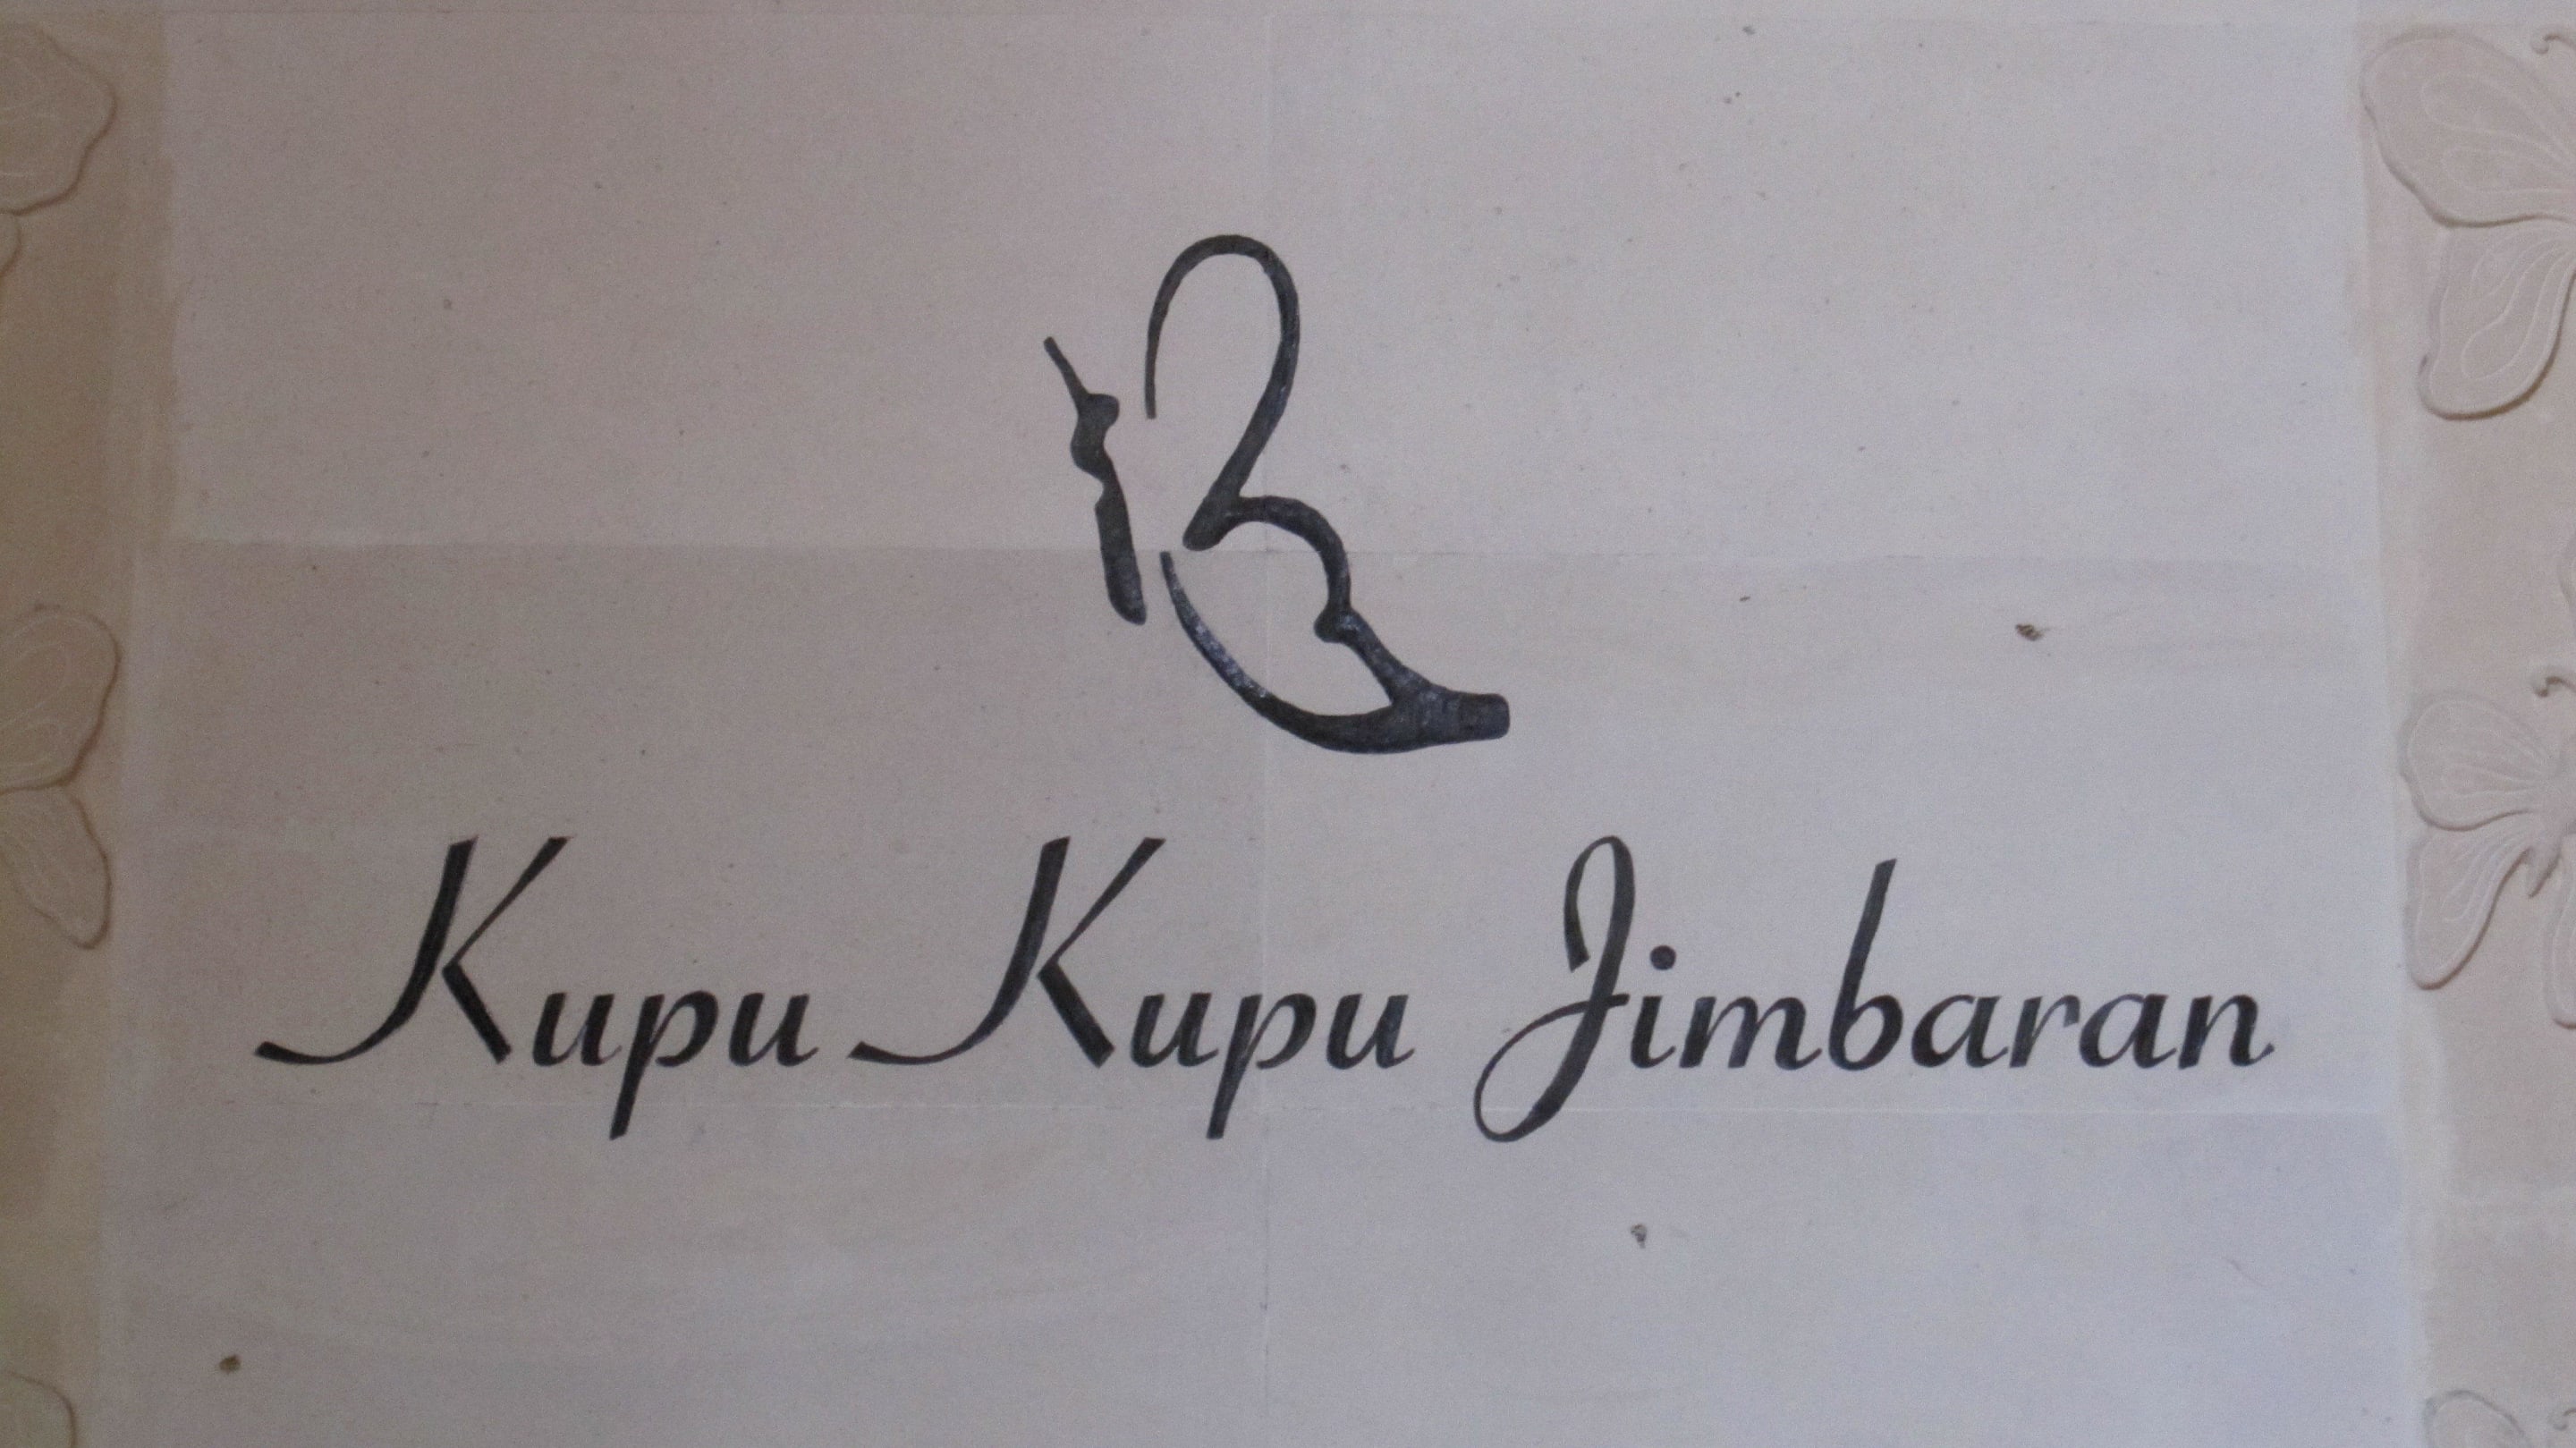 Kupu Kupu Jimbaran